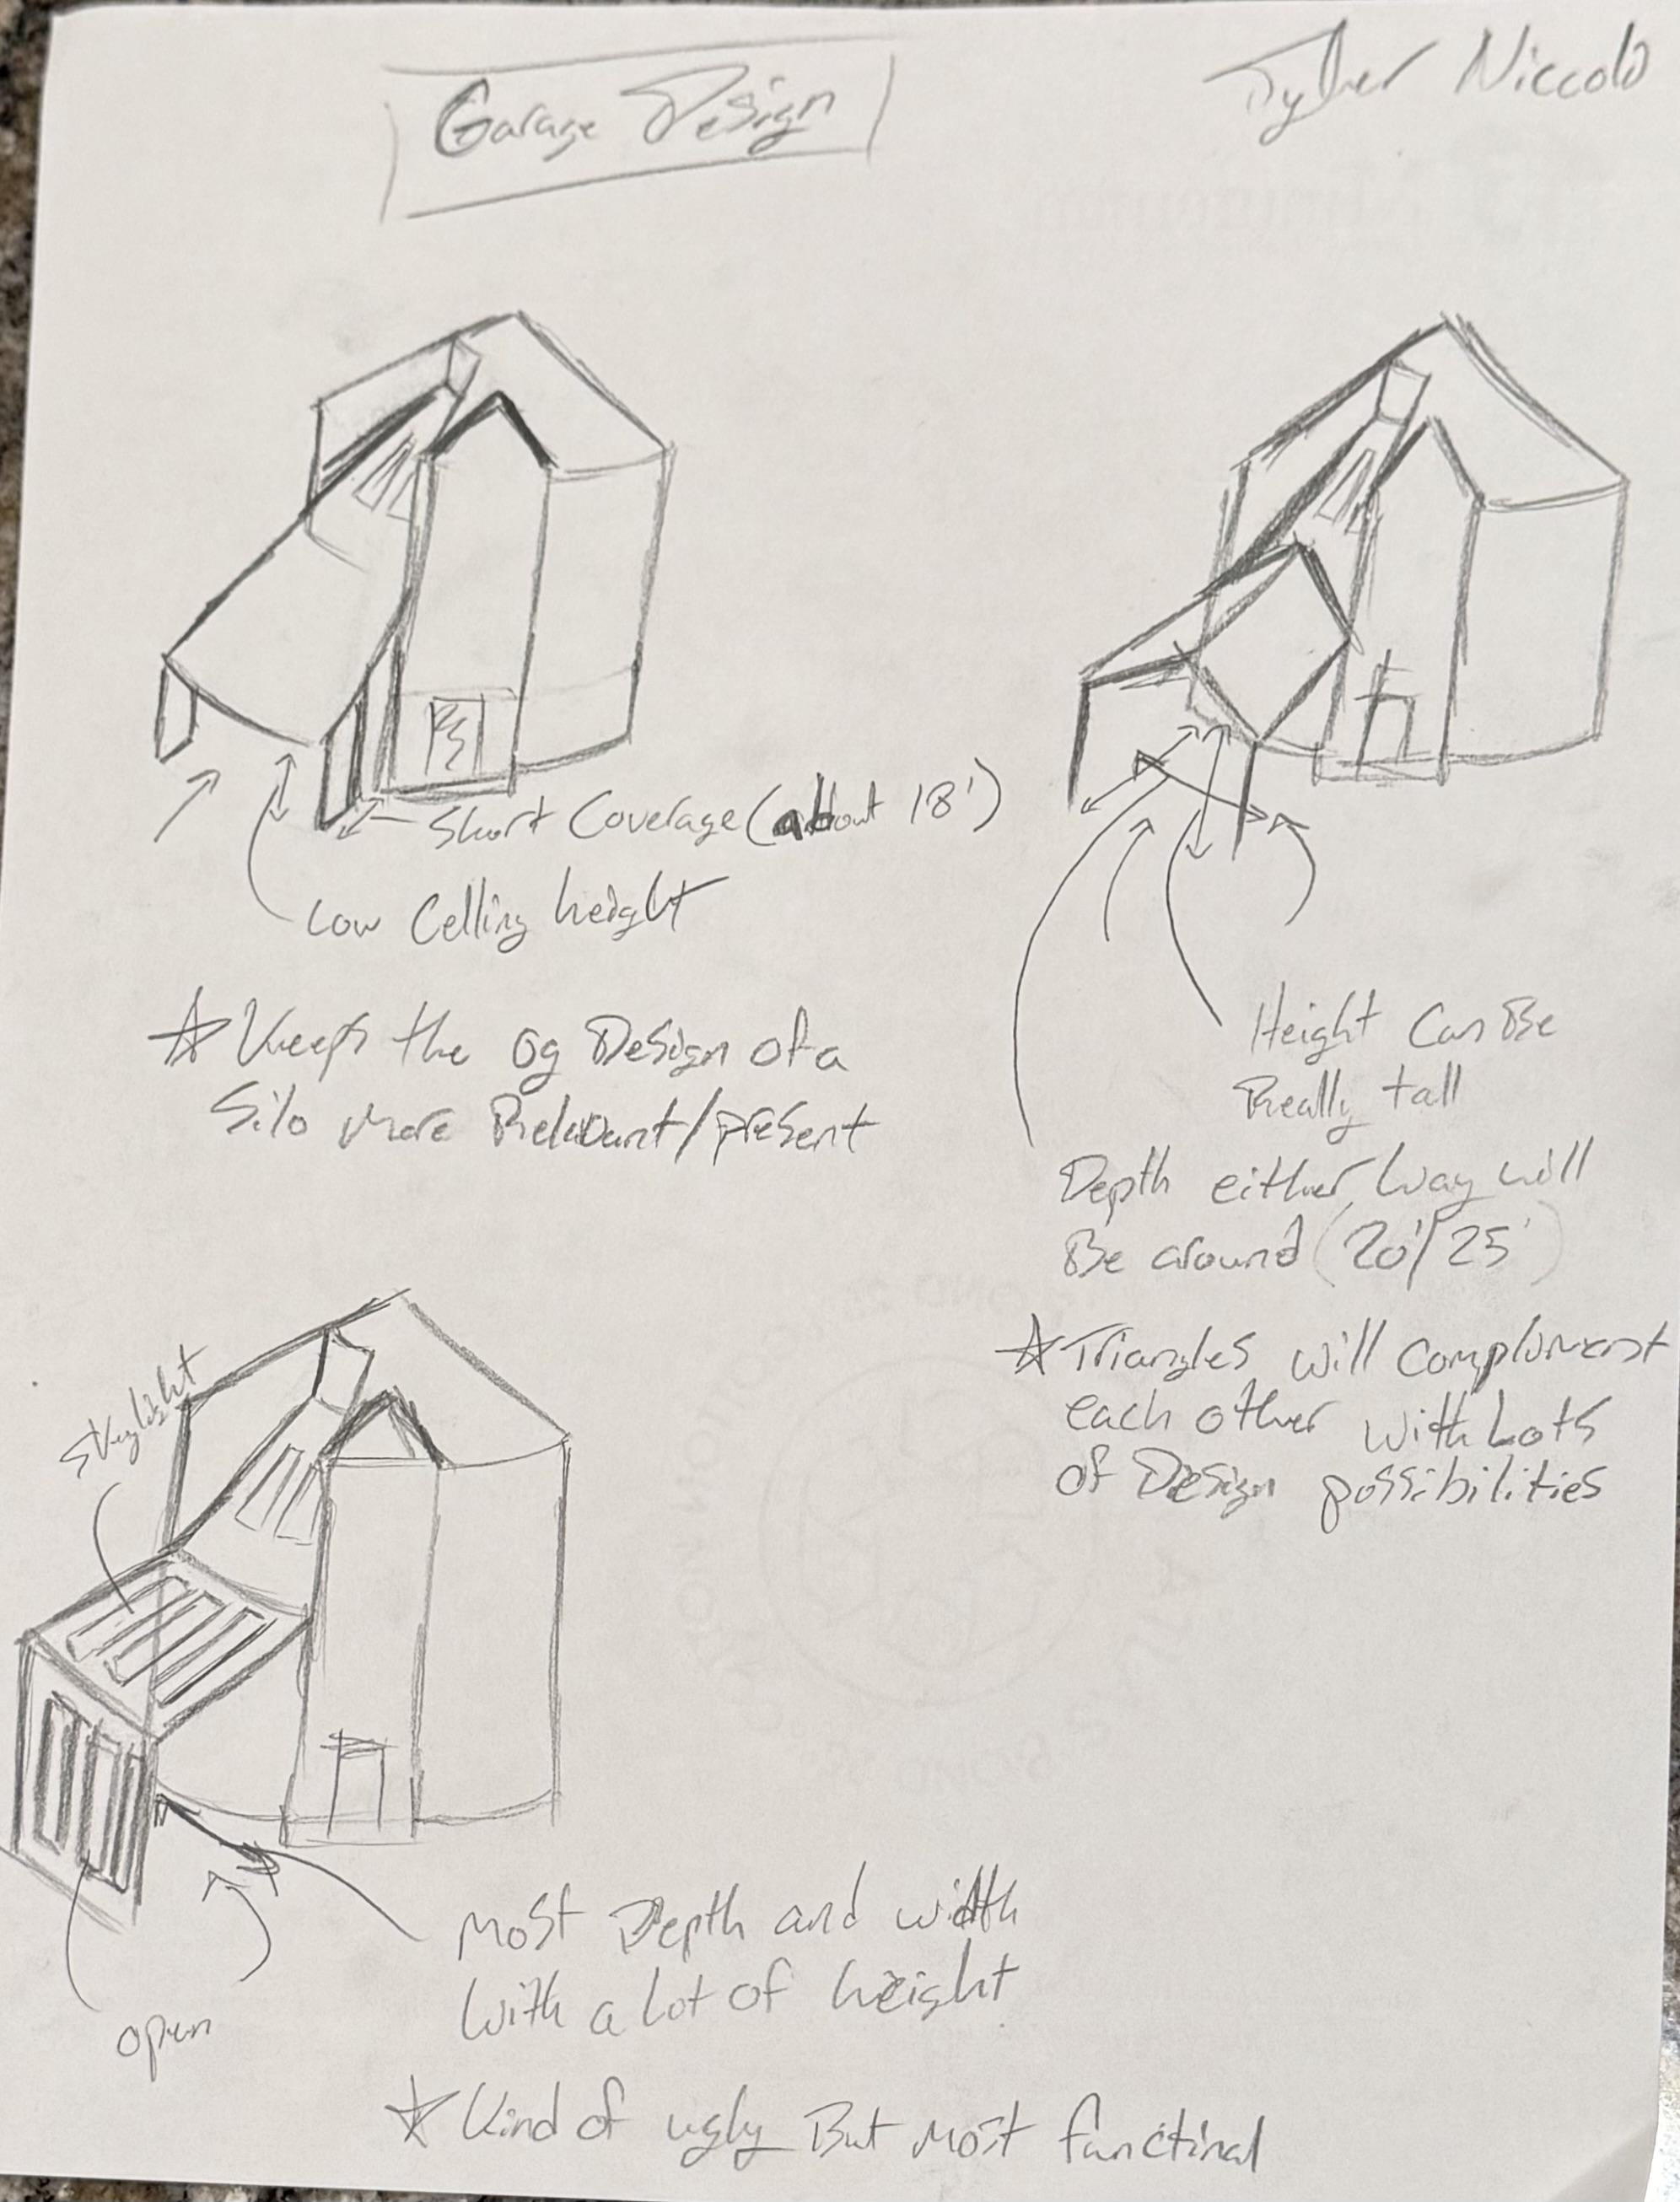 Garage Design
Tylher Niccolo
Short Coverage (about 18')
Low Celling height
☆ Keeps the og Design of a
Silo more Relavant/present
Height Can Be
Really tall
Depth either way will
Be around (20'/25')
☆ Triangles will compliment
each other with Lots
of Design possibilities
Skylight
Most Depth and width
with a lot of height
open
☆ Kind of ugly But most functinal